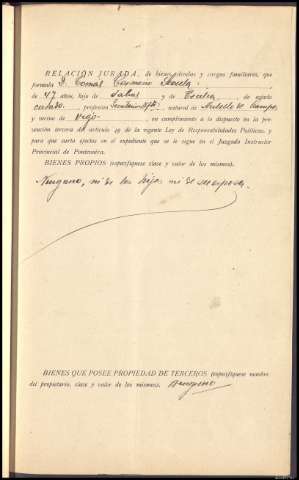 RELACIÓN JURADA, de bienes, deudas y cargas familiares, que
formula D. Tomás Carmeno
de 47 años, hijo de Jabas y de Cecilia, de estado
casado, profesión Secretario, natural de del Campo,
y vecino de Vigo, en cumplimiento a lo dispuesto en la pre-
vención tercera del artículo 49 de la vigente Ley de Responsabilidades Políticas, y
para que surta efectos en el expediente que se le sigue en el Juzgado Instructor
Provincial de Pontevedra.
BIENES PROPIOS (especifíquese clase y valor de los mismos).
Ninguno, ni de los hijos ni de su esposa.
BIENES QUE POSEE PROPIEDAD DE TERCEROS (especifíquese nombre
del propietario, clase y valor de los mismos). Ninguno